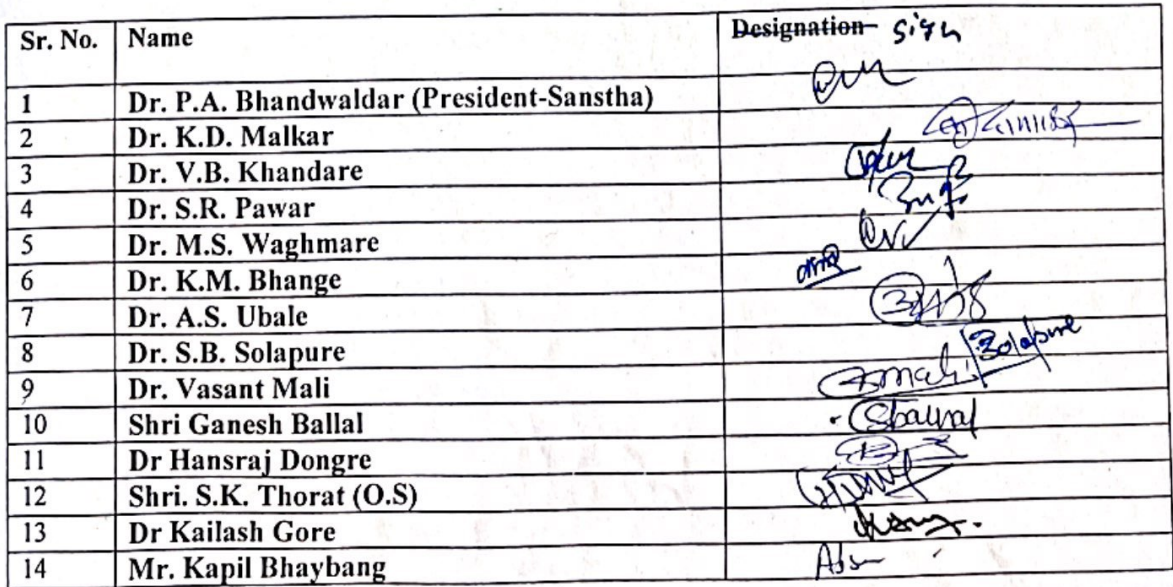 Sr. No. Name Designation Sign
1 Dr. P.A. Bhandwaldar (President-Sanstha)
2 Dr. K.D. Malkar
3 Dr. V.B. Khandare
4 Dr. S.R. Pawar
5 Dr. M.S. Waghmare
6 Dr. K.M. Bhange
7 Dr. A.S. Ubale
8 Dr. S.B. Solapure Solapure
9 Dr. Vasant Mali
10 Shri Ganesh Ballal
11 Dr Hansraj Dongre
12 Shri. S.K. Thorat (O.S)
13 Dr Kailash Gore
14 Mr. Kapil Bhaybang